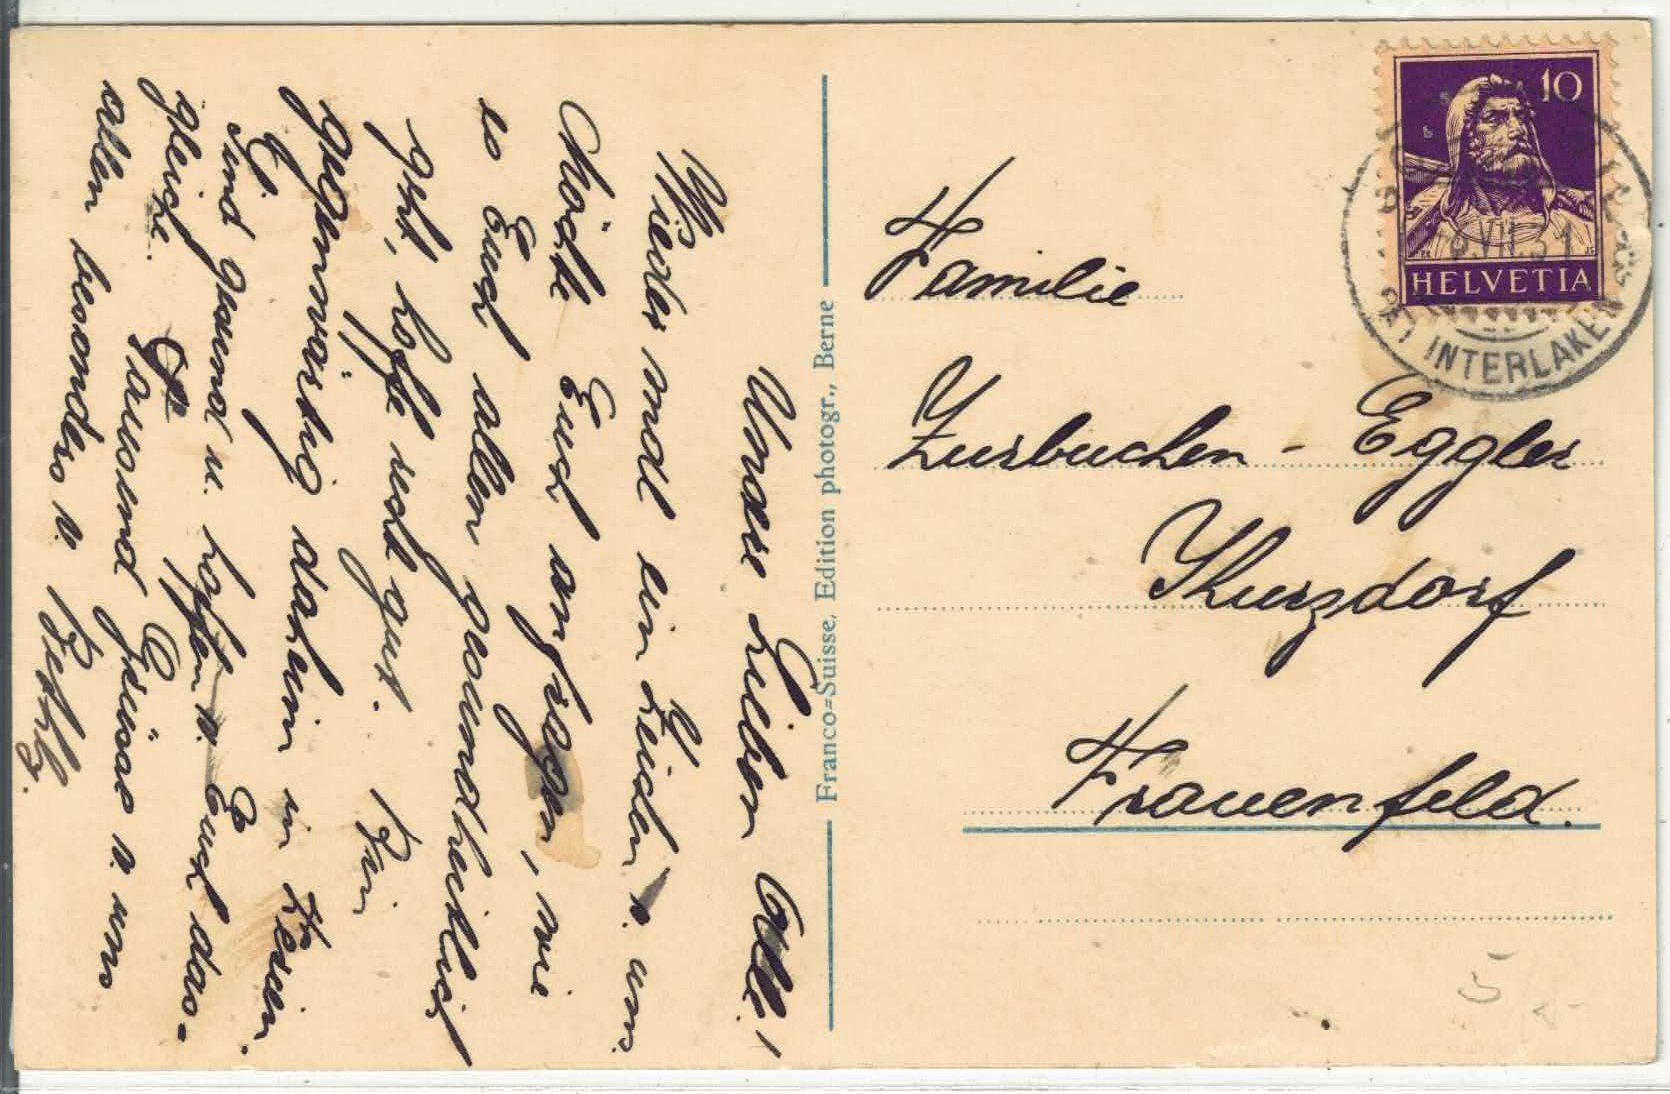 Unsere Lieben Alle!
Wieder mal ein Zeichen v. uns.
Möchte Euch anfragen, wie
es Euch allen gesundheitlich
geht, hoffe recht gut. Bin
gegenwärtig daheim in
Sind gesund u. hoffen v. Euch das-
gleiche. Tausend Grüsse v. uns
allen besonders v. Bethy.
Franco=Suisse, Edition photogr., Berne
10
HELVETIA
9.VII.31
BEI INTERLAKEN
Familie
Zurbuchen - Eggler
Kurzdorf
Frauenfeld.